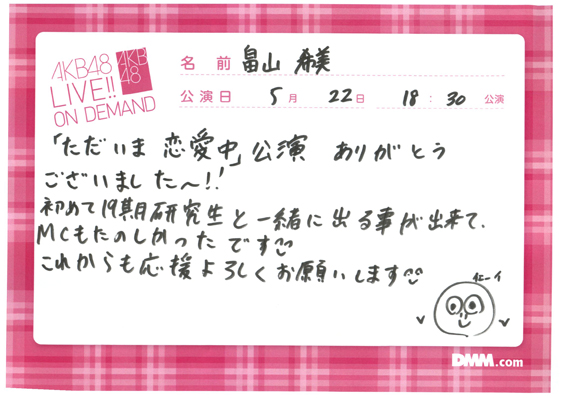 AKB48
LIVE!!
ON DEMAND
AKB
48
名前 畠山 希美
公演日 5月 22日 18:30 公演
「ただいま 恋愛中」公演 ありがとう
ございました〜!!
初めて19期研究生と一緒に出る事が出来て、
MCもたのしかったです♡
これからも応援よろしくお願いします♡
イェーイ
DMM.com